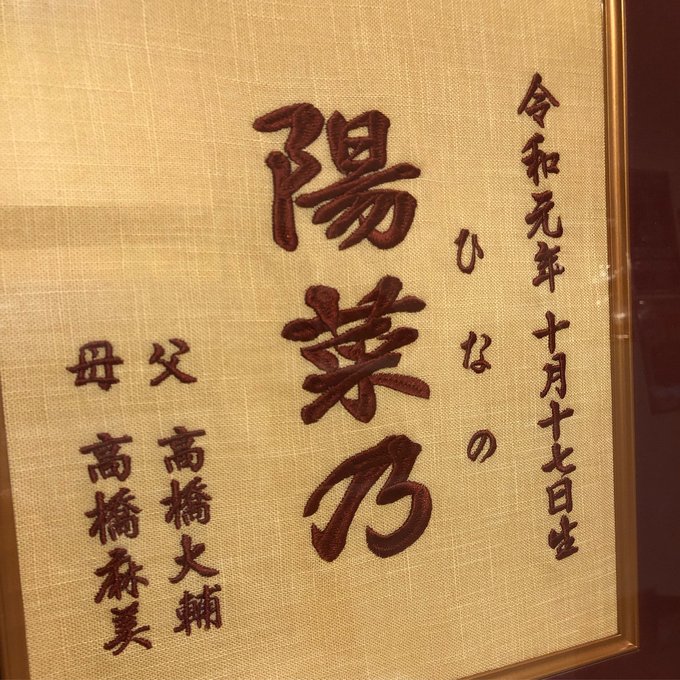 令和元年 十月十七日生
ひなの
陽菜乃
父 高橋大輔
母 高橋麻美